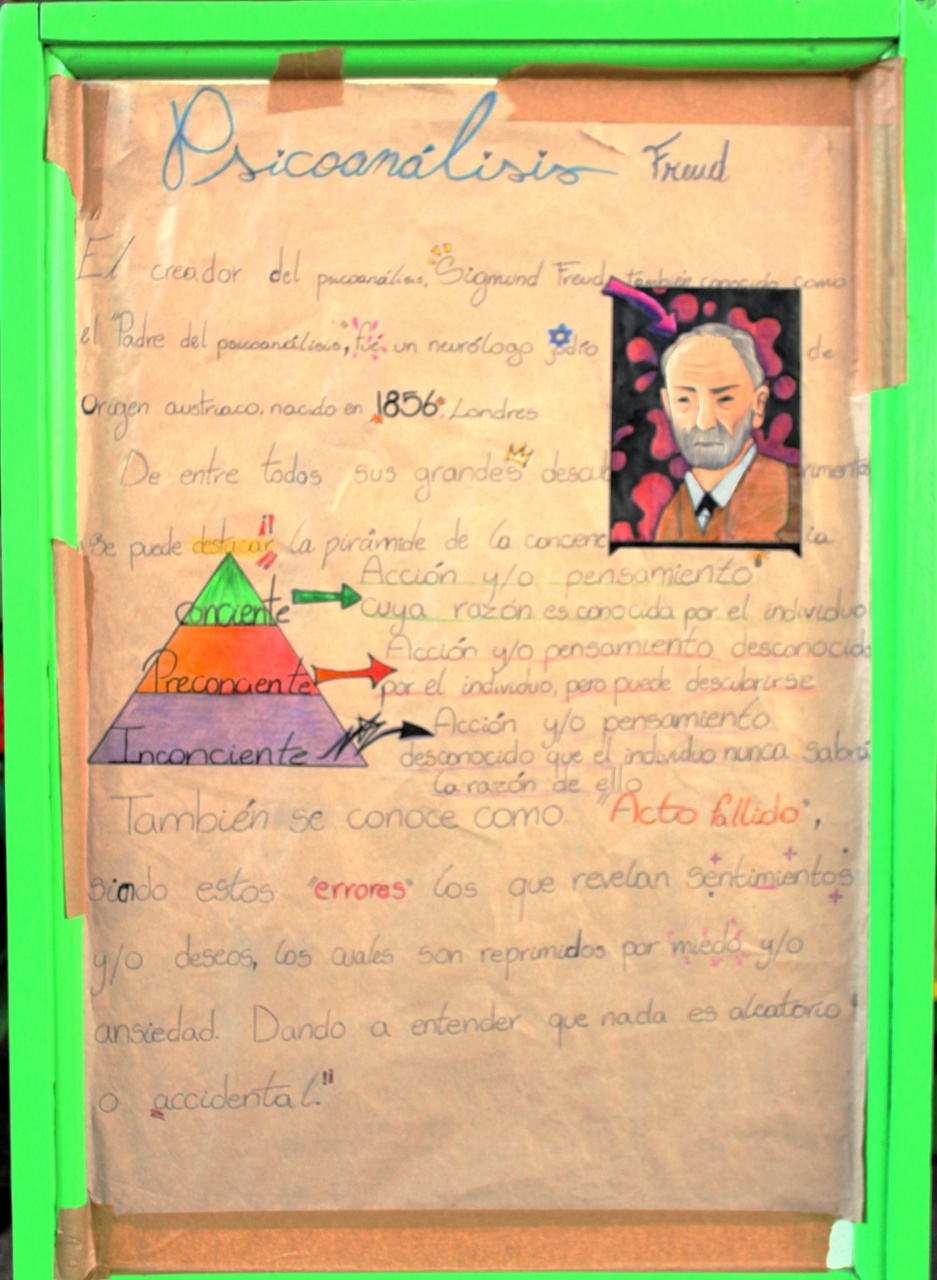 Psicoanálisis Freud
El creador del psicoanálisis, "Sigmund Freud, también conocido como
el "Padre del psicoanálisis", fué un neurólogo judío de
Origen austriaco, nacido en 1856, Londres
De entre todos sus grandes descubrimientos
se puede destacar la pirámide de la concencia
conciente
Acción y/o pensamiento
cuya razón es conocida por el individuo
Preconciente
Acción y/o pensamiento desconocido
por el individuo, pero puede descubrirse
Inconciente
Acción y/o pensamiento
desconocido que el individuo nunca sabrá
la razón de ello
También se conoce como "Acto fallido",
siendo estos "errores" los que revelan sentimientos
y/o deseos, los cuales son reprimidos por miedo y/o
ansiedad. Dando a entender que nada es aleatorio
o accidental."